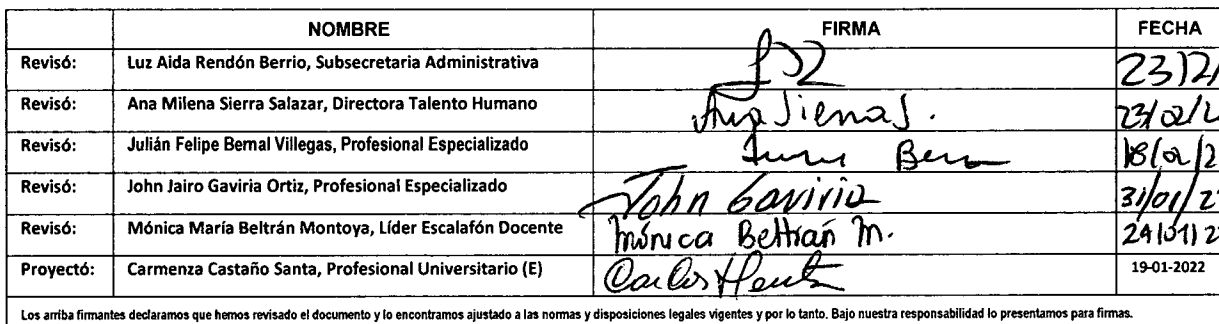 NOMBRE FIRMA FECHA
Revisó: Luz Aida Rendón Berrio, Subsecretaria Administrativa 23/2/
Revisó: Ana Milena Sierra Salazar, Directora Talento Humano Ana Sierra S. 23/02/2
Revisó: Julián Felipe Bernal Villegas, Profesional Especializado 18/02/2
Revisó: John Jairo Gaviria Ortiz, Profesional Especializado John Gaviria 31/01/2
Revisó: Mónica María Beltrán Montoya, Líder Escalafón Docente Mónica Beltrán M. 24/01/2
Proyectó: Carmenza Castaño Santa, Profesional Universitario (E) 19-01-2022
Los arriba firmantes declaramos que hemos revisado el documento y lo encontramos ajustado a las normas y disposiciones legales vigentes y por lo tanto. Bajo nuestra responsabilidad lo presentamos para firmas.